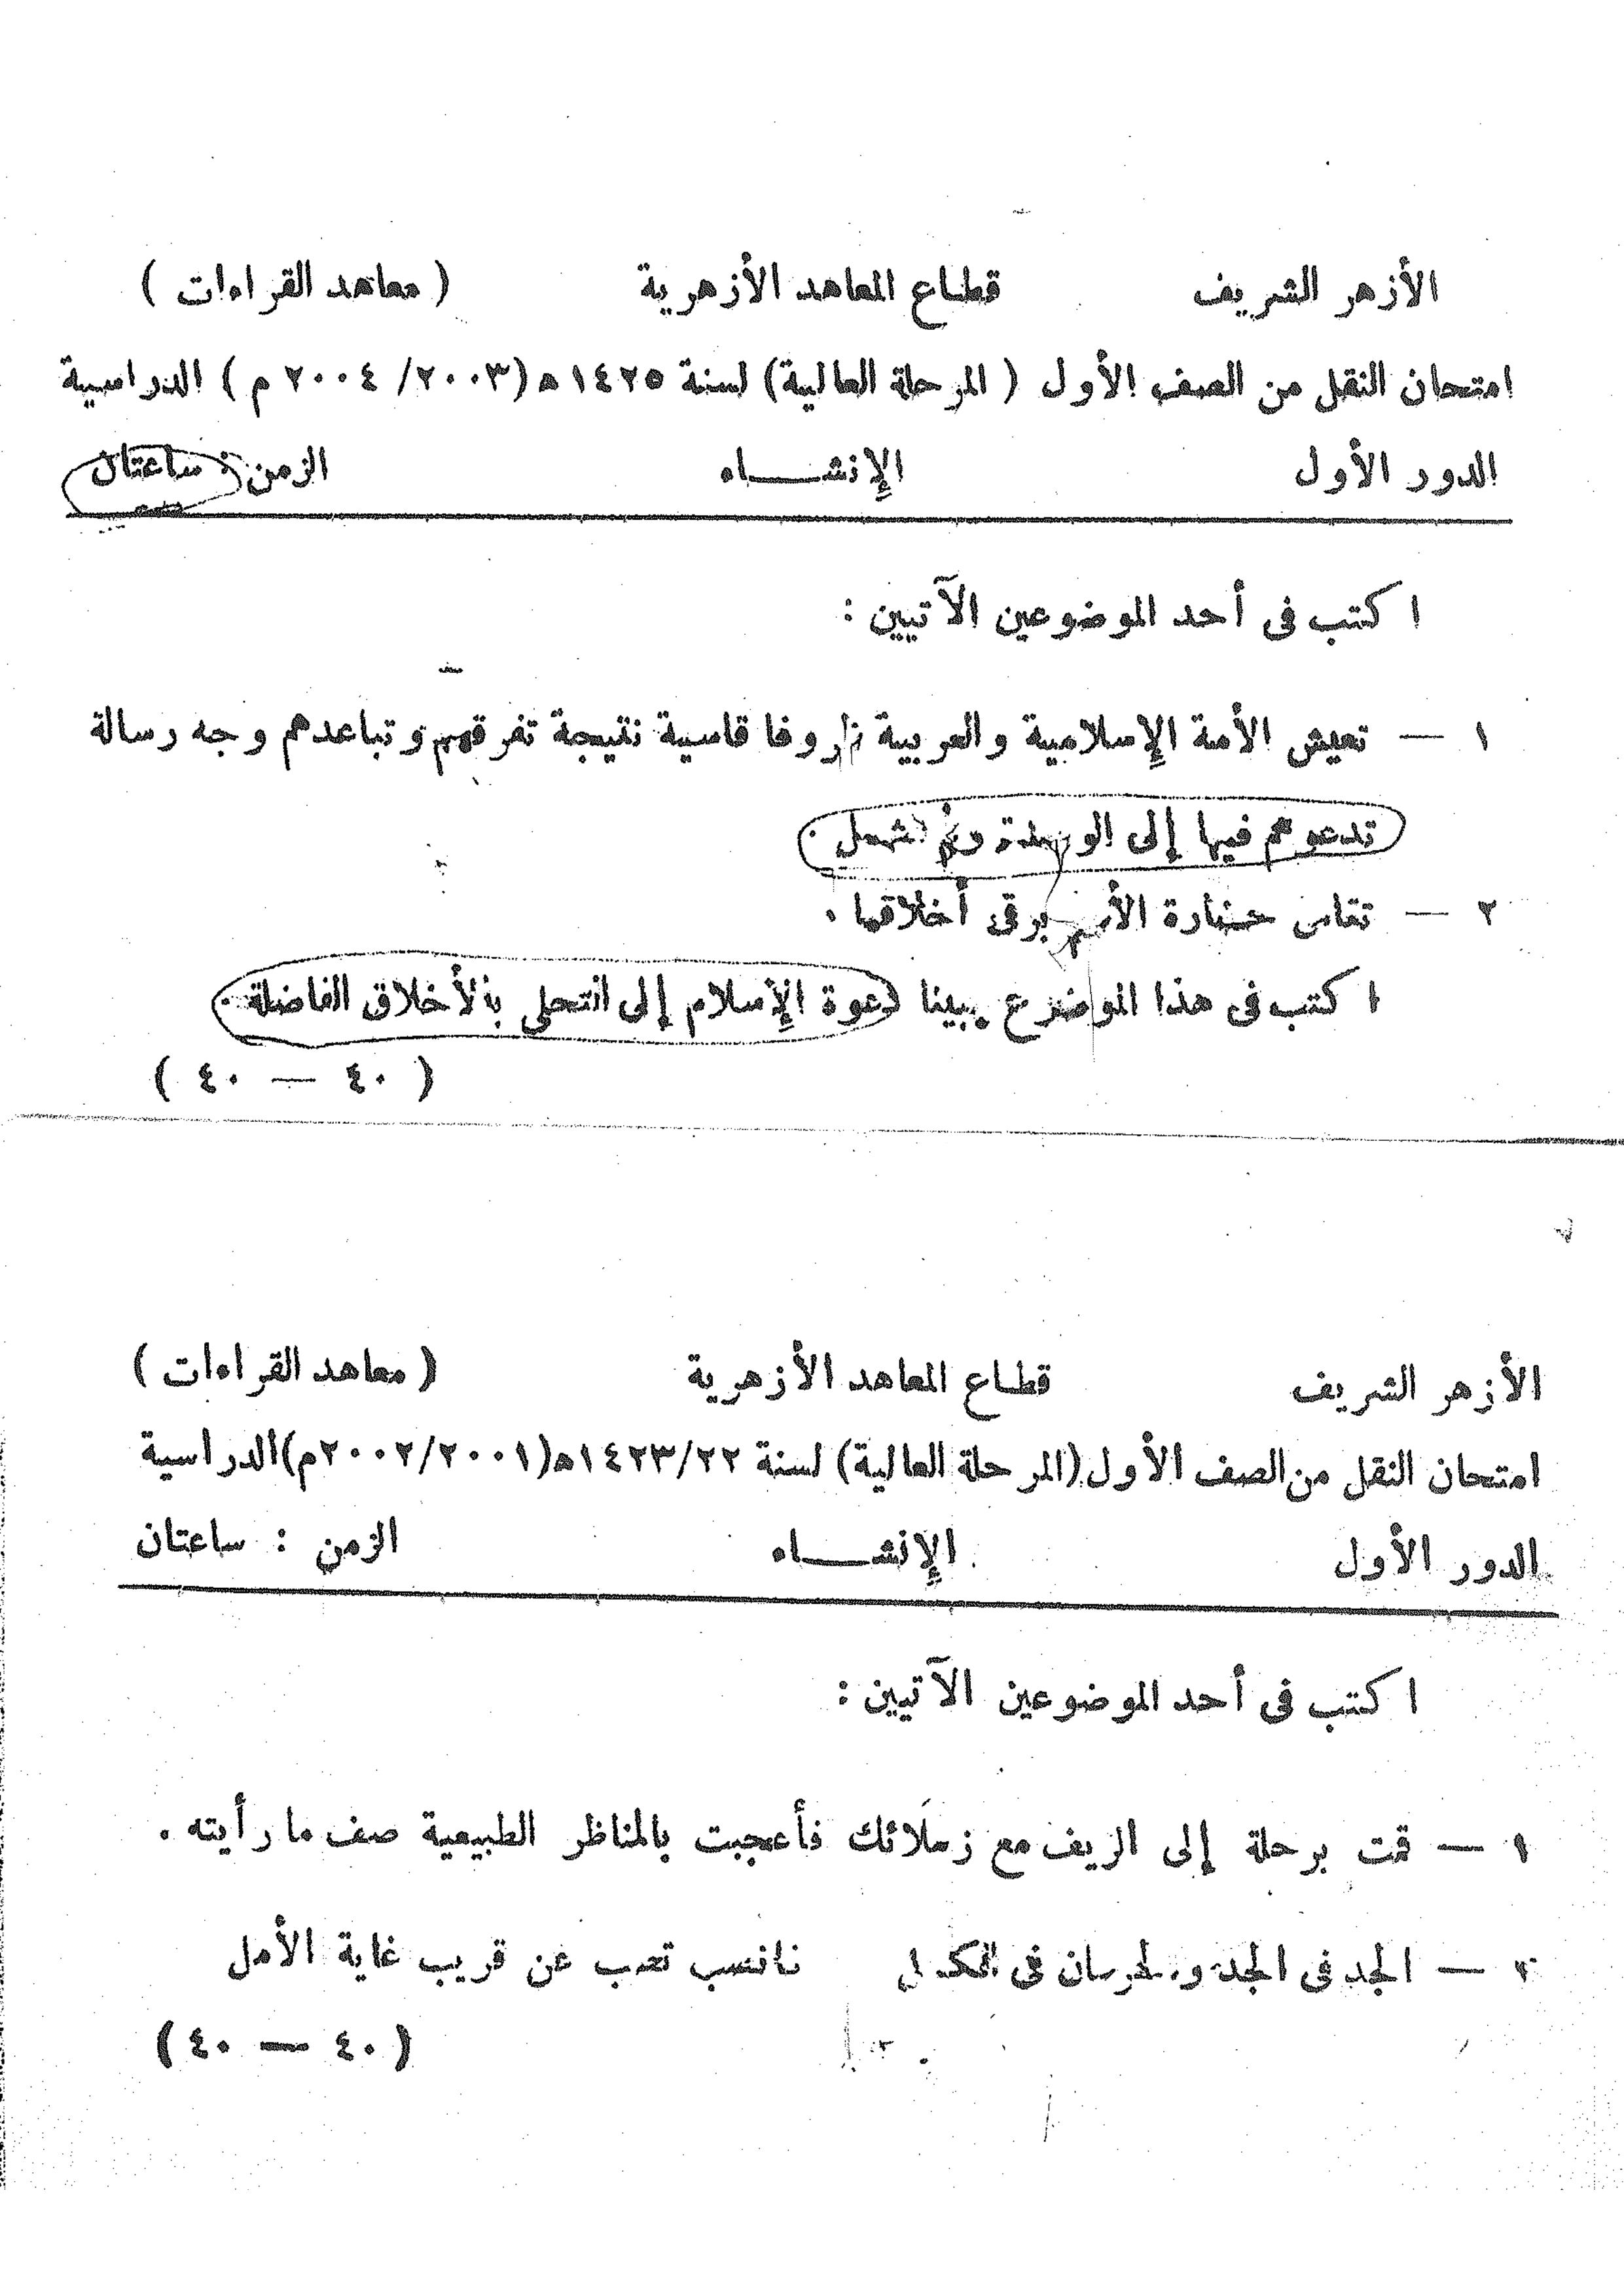 الأزهر الشريف قطاع المعاهد الأزهرية ( معاهد القراءات )
امتحان النقل من الصف الأول ( المرحلة العالية ) لسنة ١٤٢٥ه (٢٠٠٣/ ٢٠٠٤ م ) الدراسية
الدور الأول الإنشاء الزمن : ساعتان
اكتب فى أحد الموضوعين الآتيين :
١ — تعيش الأمة الإسلامية والعربية ظروفا قاسية نتيجة تفرقهم وتباعدهم وجه رسالة
تدعوهم فيها إلى الوحدة .
٢ — تقاس حضارة الأمم برقى أخلاقها .
اكتب فى هذا الموضوع مبينا دعوة الإسلام إلى التحلى بالأخلاق الفاضلة .
( ٤٠ — ٤٠ )
الأزهر الشريف قطاع المعاهد الأزهرية ( معاهد القراءات )
امتحان النقل من الصف الأول (المرحلة العالية) لسنة ١٤٢٣/٢٢ه (٢٠٠٢/٢٠٠١م) الدراسية
الدور الأول الإنشاء الزمن : ساعتان
اكتب فى أحد الموضوعين الآتيين :
١ — قمت برحلة إلى الريف مع زملائك فأعجبت بالمناظر الطبيعية صف ما رأيته .
٢ — الجد فى الجد والحرمان فى عن قريب غاية الأمل
( ٤٠ — ٤٠ )